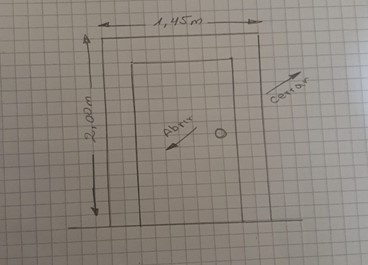 1,45m
2,00m
Abrir
cerrar